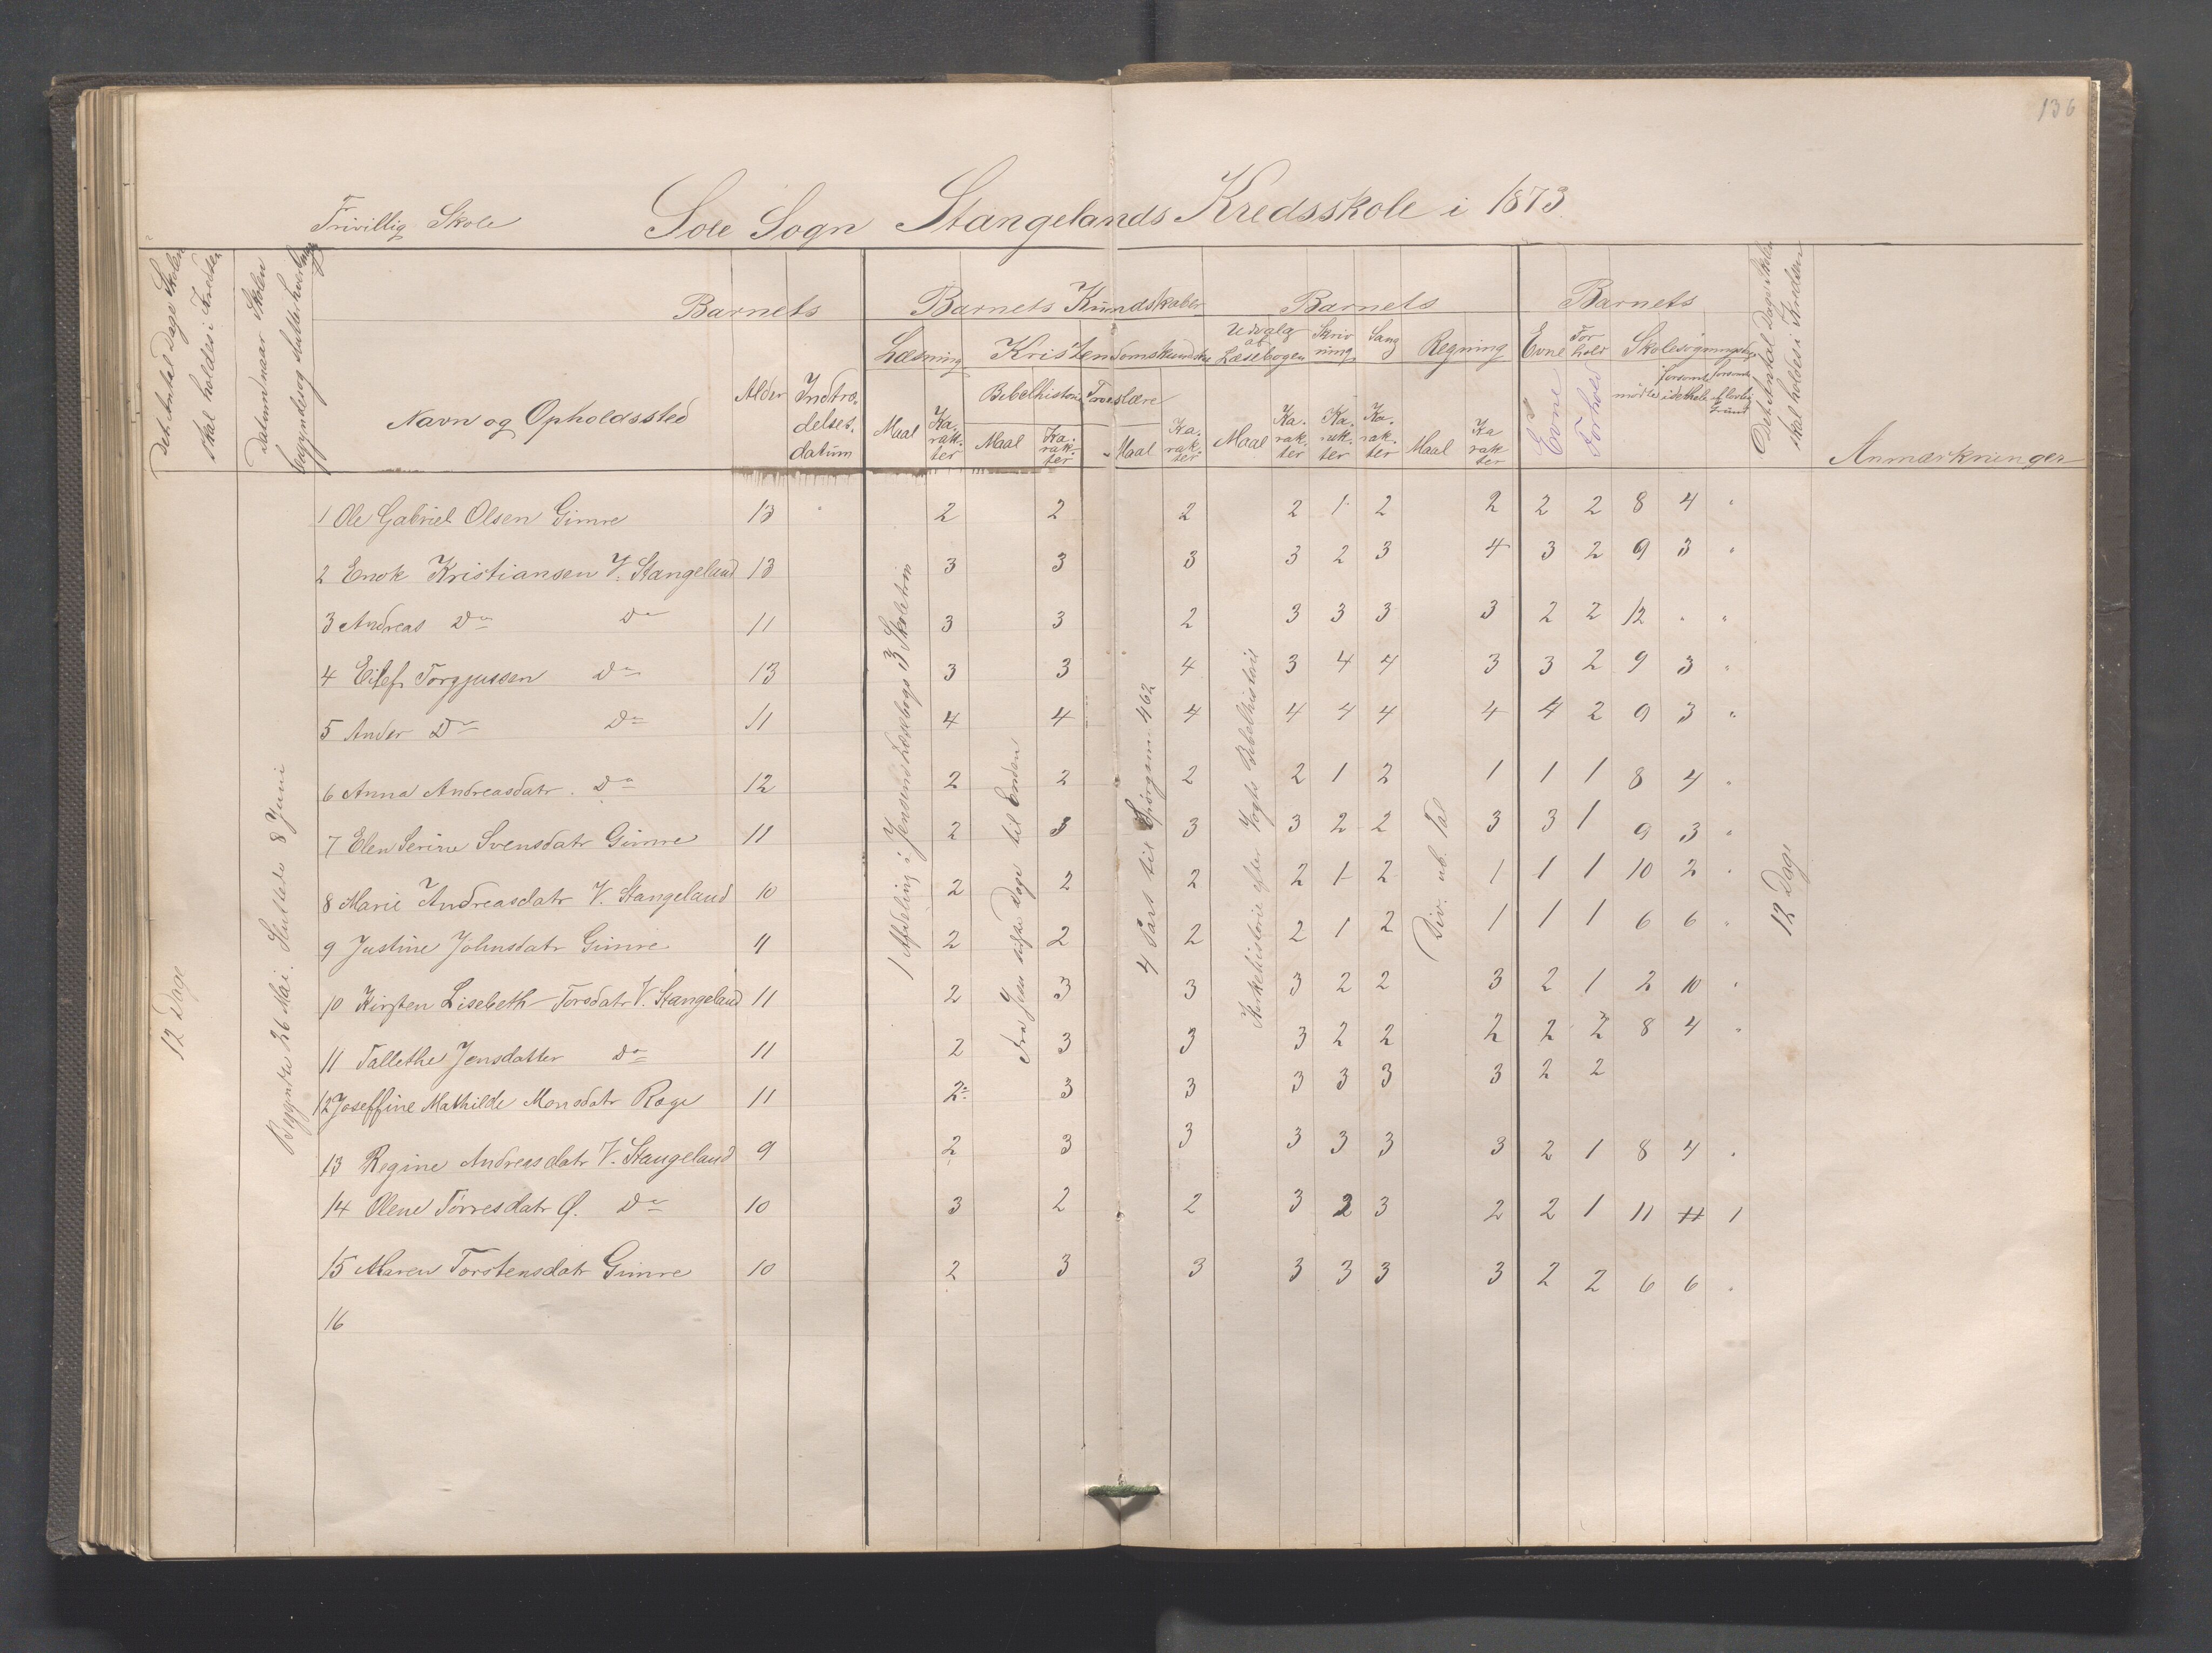 136
Frivillig Skole Sole Sogn Stangelands Kredsskole i 1873.
Det Antal Dage Skolen skal holdes i Kredsen
Datum naar Skolen begynder og slutter hver Gang
Barnets
Navn og Opholdssted
Alder
Indtrædelsesdatum
Barnets Kundskaber
Læsning
Maal
Karakter
Kristendomskundskab
Bibelhistorie
Maal
Karakter
Troeslære
Maal
Karakter
Barnets
Udvalg af Læsebogen
Maal
Karakter
Skrivning
Karakter
Sang
Karakter
Regning
Maal
Karakter
Barnets
Evne
Forhold
Evne
Forhold
Skolesøgningsdage
mødte
forsømte i det Hele
forsømte af lovlig Grund
Det Antal Dage Skolen skal holdes i Kredsen
Anmærkninger
12 Dage
Begyndte 26 Mai. Sluttede 8 Juni
1 Afdeling i Jensens Læsebogs 3 Skoletrin
Fra Jesu sidste Dage til Enden
4 Part til Spørgsm. 462
Kirkehistorie efter Vogts Bibelhistorie
Div. ub. Tal
12 Dage
1 Ole Gabriel Olsen Gimre 13 2 2 2 2 1 2 2 2 2 8 4 "
2 Enok Kristiansen V. Stangeland 13 3 3 3 3 2 3 4 3 2 9 3 "
3 Andreas Do Do 11 3 3 2 3 3 3 3 2 2 12 " "
4 Eilef Torgjussen Do 13 3 3 4 3 4 4 3 3 2 9 3 "
5 Ander Do Do 11 4 4 4 4 4 4 4 4 2 9 3 "
6 Anna Andreasdatr. Do 12 2 2 2 2 1 2 1 1 1 8 4 "
7 Elen Serine Svensdatr Gimre 11 2 3 3 3 2 2 3 3 1 9 3 "
8 Marie Andreasdatr V. Stangeland 10 2 2 2 2 1 2 1 1 1 10 2 "
9 Justine Johnsdatr Gimre 11 2 2 2 2 1 2 1 1 1 6 6 "
10 Kirsten Lisebeth Torsdatr V. Stangeland 11 2 3 3 3 2 2 3 2 1 2 10 "
11 Tallethe Jensdatter Do 11 2 3 3 3 2 2 2 2 2 8 4 "
12 Joseffine Mathilde Monsdatr Rage 11 2 3 3 3 3 3 3 2 2
13 Regine Andreasdatr V. Stangeland 9 2 3 3 3 3 3 3 2 1 8 4 "
14 Olene Torresdatr Ø. Do 10 3 2 2 3 3 3 2 2 1 11 1
15 Maren Torstensdatr Gimre 10 2 3 3 3 3 3 3 2 2 6 6 "
16